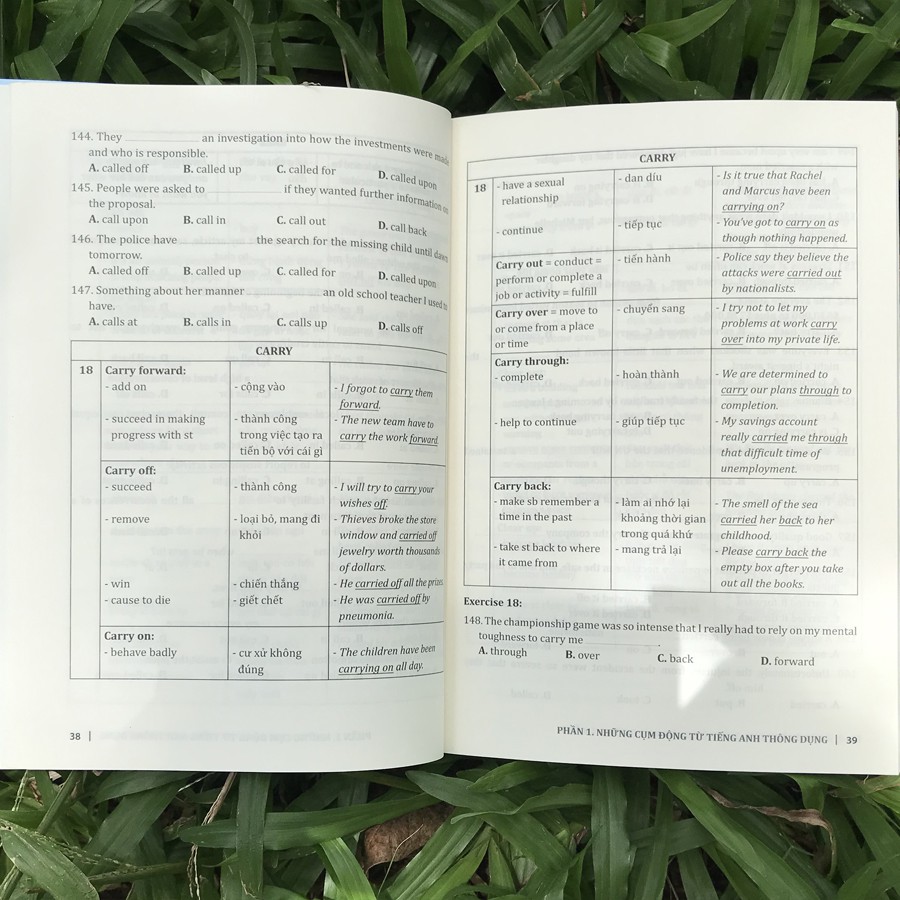 144. They ............ an investigation into how the investments were made
and who is responsible.
A. called off B. called up C. called for D. called upon
145. People were asked to ............ if they wanted further information on
the proposal.
A. call upon B. call in C. call out D. call back
146. The police have ............ the search for the missing child until dawn
tomorrow.
A. called off B. called up C. called for D. called upon
147. Something about her manner ............ an old school teacher I used to
have.
A. calls at B. calls in C. calls up D. calls off
CARRY
18 Carry forward:
- add on - cộng vào - I forgot to carry them
forward.
- succeed in making - thành công - The new team have to
progress with st trong việc tạo ra carry the work forward.
tiến bộ với cái gì
Carry off:
- succeed - thành công - I will try to carry your
wishes off.
- remove - loại bỏ, mang đi - Thieves broke the store
khỏi window and carried off
jewelry worth thousands
of dollars.
- win - chiến thắng - He carried off all the prizes.
- cause to die - giết chết - He was carried off by
pneumonia.
Carry on:
- behave badly - cư xử không - The children have been
đúng carrying on all day.
38 |
CARRY
18 - have a sexual - dan díu - Is it true that Rachel
relationship and Marcus have been
carrying on?
- continue - tiếp tục - You've got to carry on as
though nothing happened.
Carry out = conduct = - tiến hành - Police say they believe the
perform or complete a attacks were carried out
job or activity = fulfill by nationalists.
Carry over = move to - chuyển sang - I try not to let my
or come from a place problems at work carry
or time over into my private life.
Carry through:
- complete - hoàn thành - We are determined to
carry our plans through to
completion.
- help to continue - giúp tiếp tục - My savings account
really carried me through
that difficult time of
unemployment.
Carry back:
- make sb remember a - làm ai nhớ lại - The smell of the sea
time in the past khoảng thời gian carried her back to her
trong quá khứ childhood.
- take st back to where - mang trả lại - Please carry back the
it came from empty box after you take
out all the books.
Exercise 18:
148. The championship game was so intense that I really had to rely on my mental
toughness to carry me ............ .
A. through B. over C. back D. forward
PHẦN 1. NHỮNG CỤM ĐỘNG TỪ TIẾNG ANH THÔNG DỤNG | 39